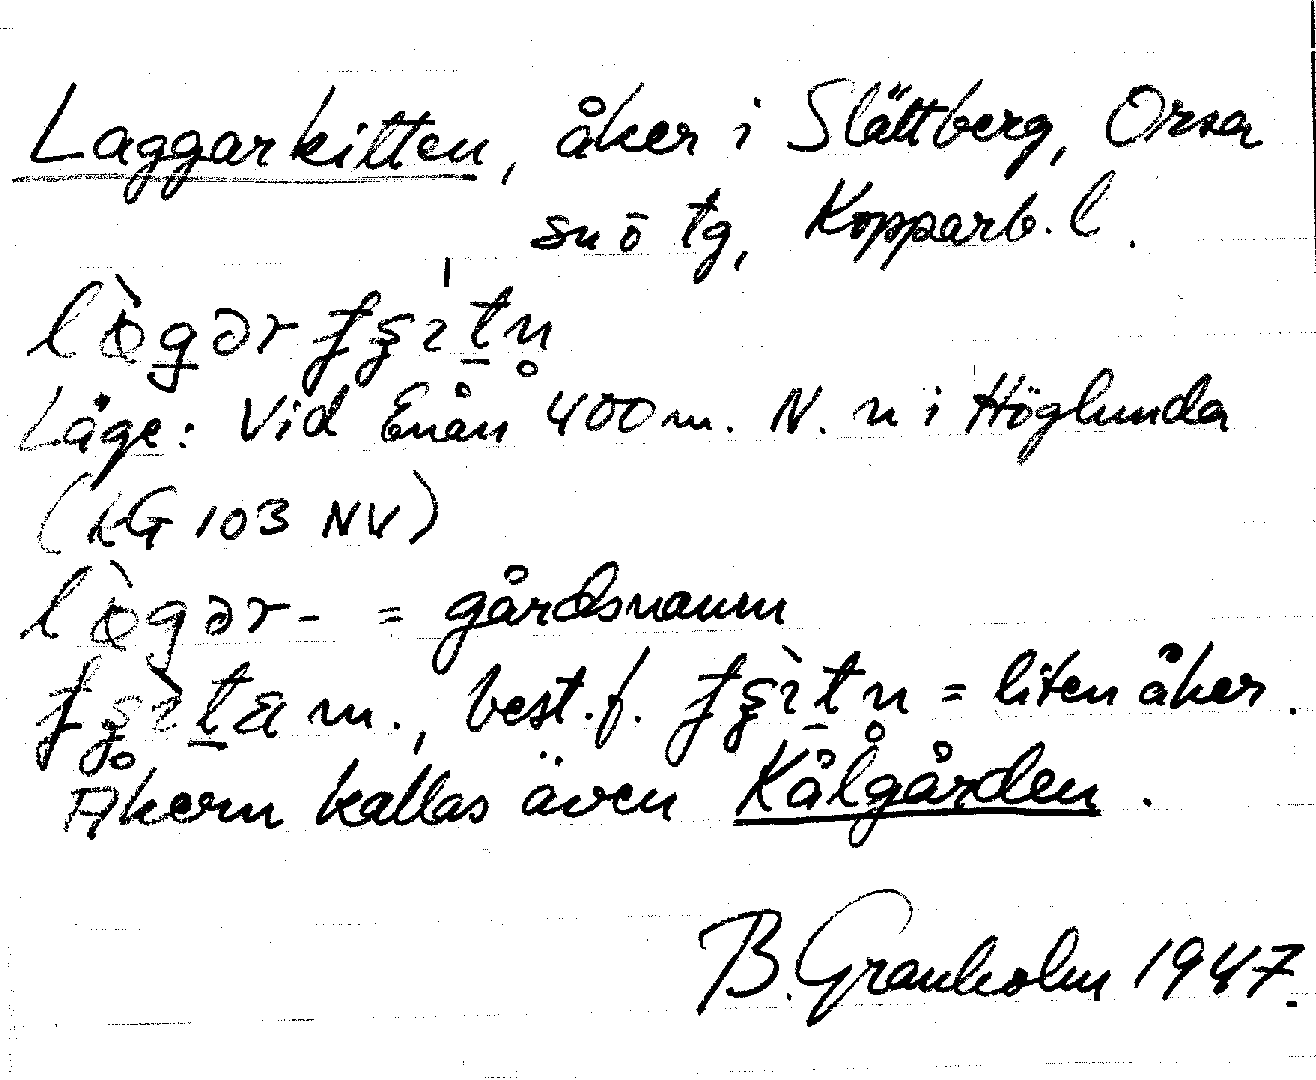 Laggarkitten, åker i Slättberg, Orsa
sn ō tg, Kopparb. l.
Läge: Vid Enån 400 m. N. n i Höglunda
(LG 103 NV)
= gårdsnamn
m., best. f. = liten åker.
Åkern kallas även Kålgården.
B. Granholm 1947.